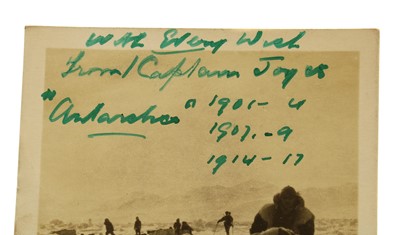 With Every Wish
From Captain Joyce
"Antarctica" 1901-4
1907-9
1914-17